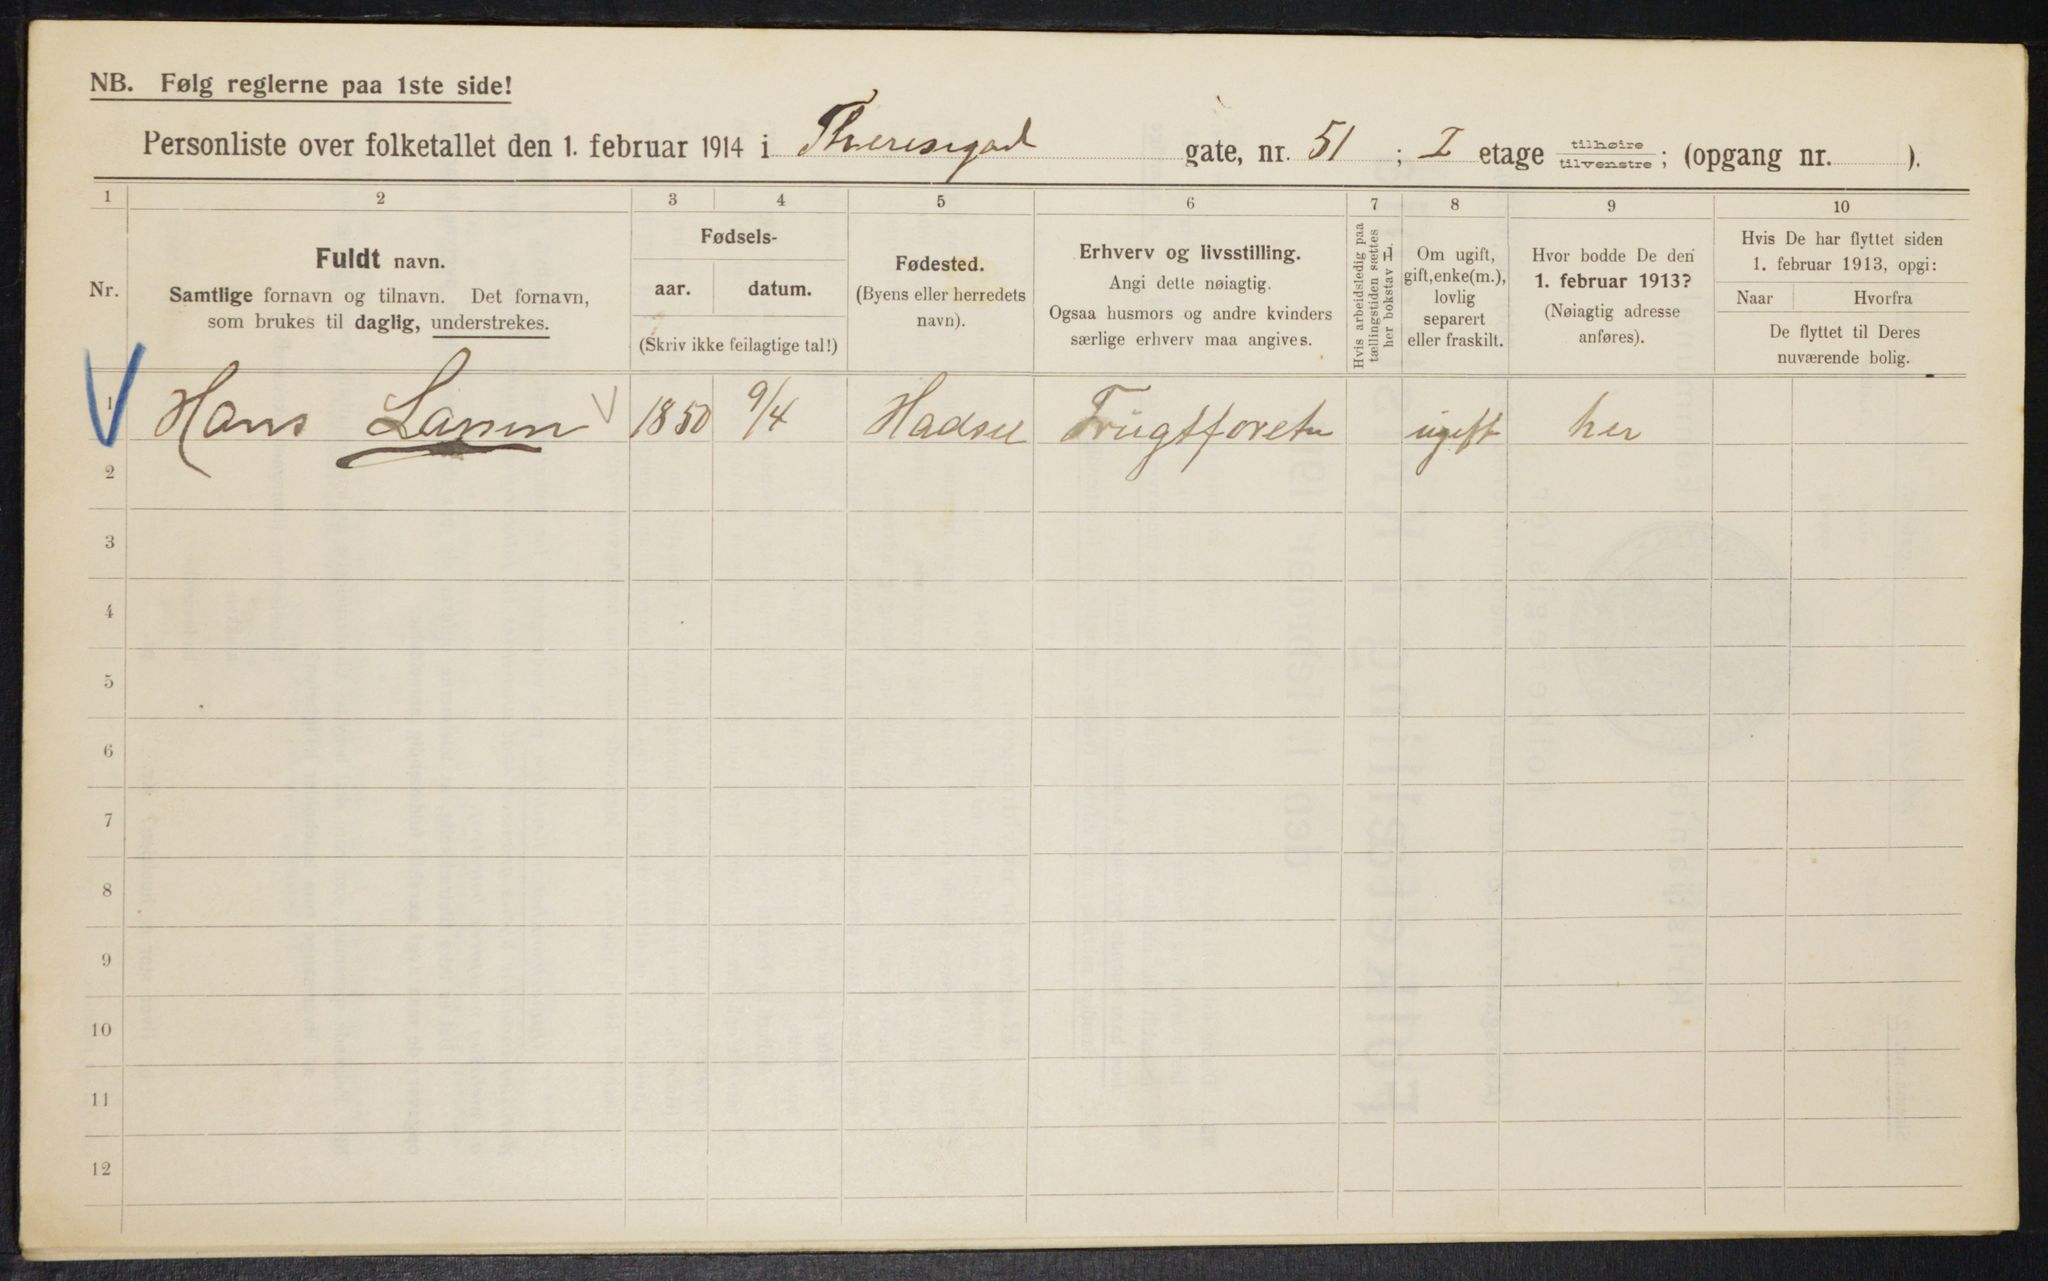 NB. Følg reglerne paa 1ste side!
Personliste over folketallet den 1. februar 1914 i Theresegad gate, nr. 51 ; I etage tilhøire tilvenstre; (opgang nr. ).
1 2 3 4 5 6 7 8 9 10
Nr.
Fuldt navn.
Samtlige fornavn og tilnavn. Det fornavn,
som brukes til daglig, understrekes.
Fødsels-
aar. datum.
(Skriv ikke feilagtige tal!)
Fødested.
(Byens eller herredets
navn).
Erhverv og livsstilling.
Angi dette nøiagtig.
Ogsaa husmors og andre kvinders
særlige erhverv maa angives.
Hvis arbeidsledig paa
tællingstiden sættes
her bokstav L
Om ugift,
gift, enke(m.),
lovlig
separert
eller fraskilt.
Hvor bodde De den
1. februar 1913?
(Nøiagtig adresse
anføres).
Hvis De har flyttet siden
1. februar 1913, opgi:
Naar Hvorfra
De flyttet til Deres
nuværende bolig.
1 Hans Larsen 1850 9/4 Hadsel ugift her
2
3
4
5
6
7
8
9
10
11
12